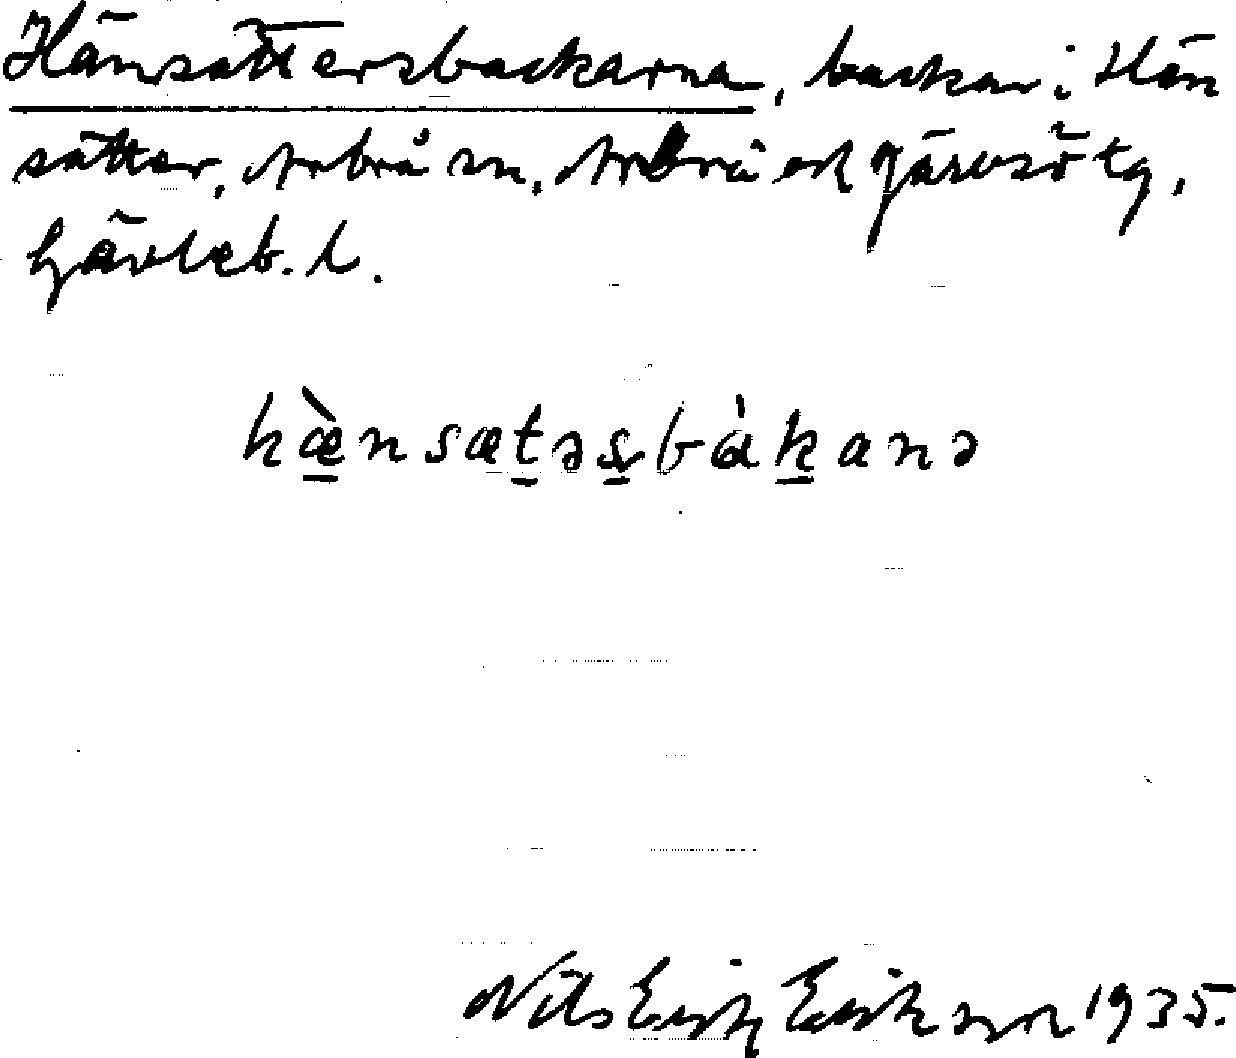 Hänsättersbackarna, backar i Hän
sätter, Arbrå sn, Arbrå och Järvsö tg,
Gävleb. l.
hæ̠̀nsæt̠əs̠bàk̠anə
Nils Erik Eriksson 1935.